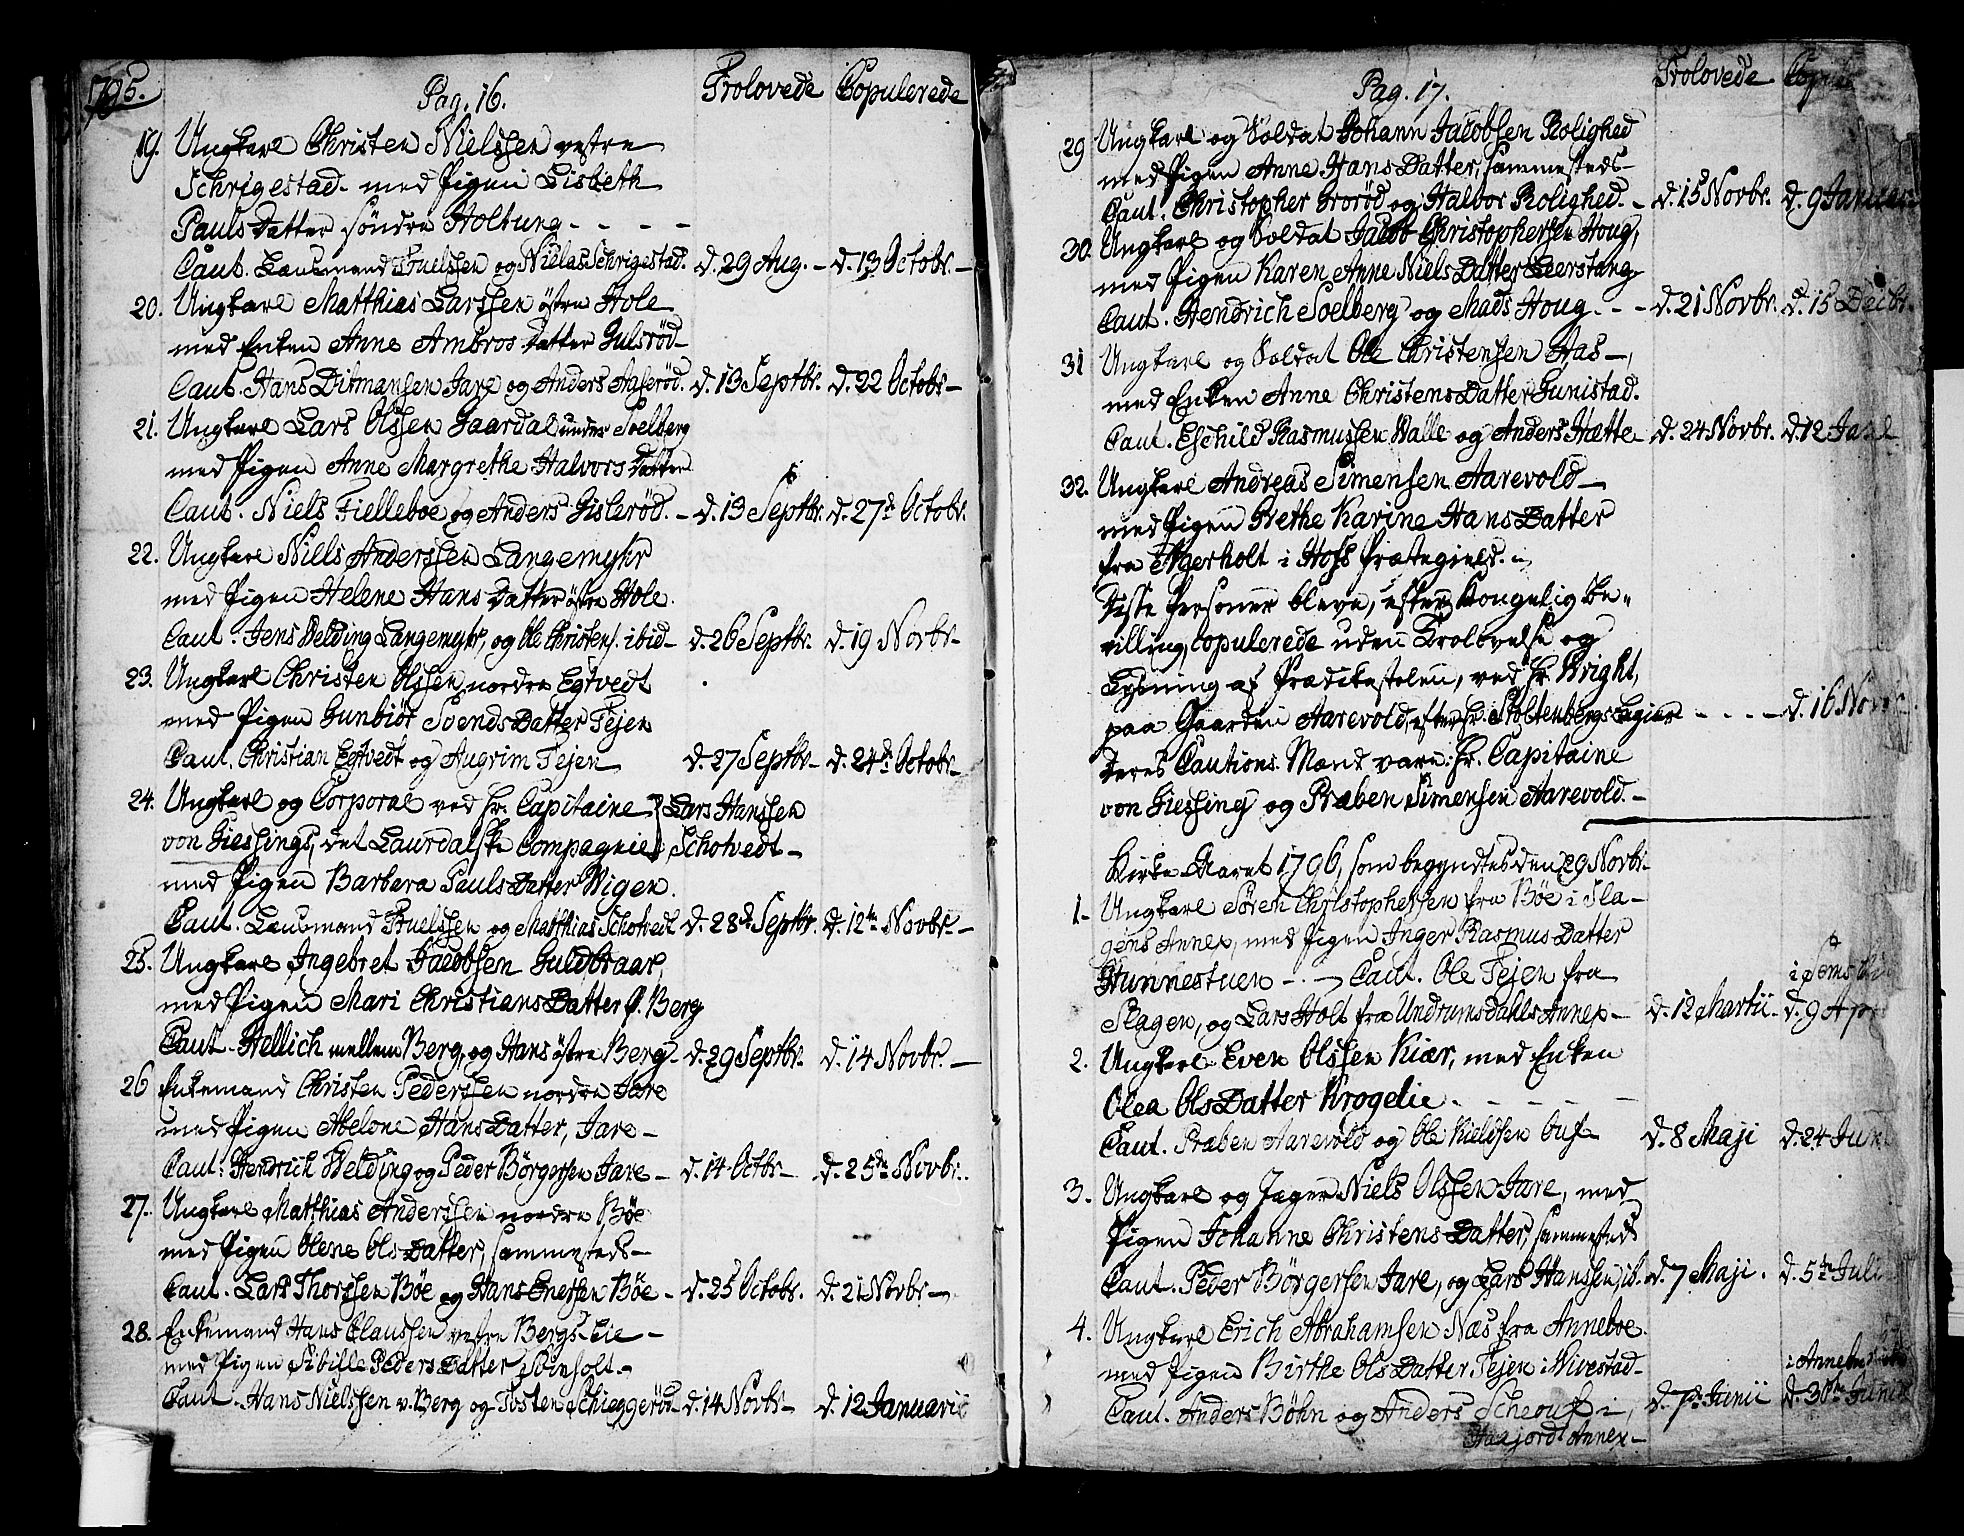 1795.
Pag. 16.
Trolovede Copulerede
19. Ungkarl Christen Nielssen vestre
Schrigestad - med Pigen Lisbeth
Pauls Datter söndre Holtung - - - -
Caut. Lensmand Truelssen og Nielas Schrigestad. d. 29 Aug. - d. 13 Octobr. -
20. Ungkarl Matthias Larssen östre Hole
med Enken Anne Ambros Datter Gulsröd -
Caut. Hans Ditmansen Jare og Anders Aaseröd. d. 13 Septbr. d. 22 Octobr -
21. Ungkarl Lars Olssen Gaardal under Soelberg
med Pigen Anne Margrethe Halvors Datter
Caut. Niels Fielleboe og Anders Gisleröd. - d. 13 Septbr. d. 27d Octobr.
22. Ungkarl Niels Anderssen Langemyhr
med Pigen Helene Hans Datter östre Hole.
Caut. Jens Welding Langemyhr, og Ole Christens. ibid - d. 26 Septbr. d. 19 Novbr -
23. Ungkarl Christen Olssen nordre Egtvedt
med Pigen Gunbiör Svends Datter Tejen
Caut. Christian Egtvedt og Augrim Tejen d. 27 Septbr - d. 24d Octobr -
24. Ungkarl og Corporal ved Hr. Capitaine } Lars Hanssen
von Giessings, det Laurdalske Compagnie } Schotvedt -
med Pigen Barbara Pauls Datter Wigen.
Caut. Lensmand Truelssen og Matthias Schotvedt d. 28d Septbr. d. 12te Novbr. -
25. Ungkarl Ingebret Jacobsen Guldkraar,
med Pigen Mari Christians Datter ö. Berg
Caut. Hellich mellem Berg, og Hans östre Berg - d. 29 Septbr. d. 14 Novbr. -
26 Enkemand Christen Pederssen nordre Jare
med Pigen Abelone Hans Datter, Jare -
Caut. Hendrich Welding og Peder Börgersen Jare - d. 14 Octbr - d. 25de Novbr.
27. Ungkarl Matthias Anderssen nordre Böe
med Pigen Olene Ols Datter, sammesteds -
Caut. Lars Thorssen Böe og Hans Enersen Böe - d. 25 Octobr. d. 21 Novbr -
28. Enkemand Hans Claussen vestre Bergs-Eie -
med Pigen Sibille Peders Datter Soinholt -
Caut. Hans Nielssen v. Berg og Tosten Schieggeröd d. 14 Novbr - d. 12 Januarii
Pag. 17.
Trolovede
29 Ungkarl og Soldat Johann Jacobsen Rolighed
med Pigen Anne Hans Datter, sammesteds -
Caut. Christopher Groröd og Halvor Rolighed. - d. 15 Novbr. d. 9 Januar
30. Ungkarl og Soldat Jacob Christophersen Houg,
med Pigen Karen Anne Niels Datter Leerstang
Caut. Hendrich Soelberg og Mads Houg - - - d. 21 Novbr. d. 15 Decbr.
31 Ungkarl og Soldat Ole Christensen Aas -,
med Enken Anne Christens Datter Gunistad.
Caut. Eschild Rasmussen Walle og Anders Hætte - d. 24 Novbr. d. 12 Jan
32. Ungkarl Andreas Simensen Aarevold -
med Pigen Grethe Karine Hans Datter
fra Agerholt i Hofs Præstegield. -
Disse Personer bleve, efter Kongelig Be-
villing, Copulerede uden Trolovelse og
Lysning af Prædikestolen, ved Hr. Wright,
paa Gaarden Aarevold, efter Hr. Stoltenbergs - - - - d. 16 Novb
Deres Cautions-Mænd vare: Hr. Capitaine
von Giessing og Præben Simensen Aarevold. -
Kirke-Aaret 1796, som begyndtes den 29 Novbr.
1 - Ungkarl Sören Christophersen fra Böe i Sla-
gens Annex, med Pigen Inger Rasmus Datter
Hunnestuen - . - Caut. Ole Tejen fra i Sems
Slagen, og Lars Holt fra Undrumsdahls Annex - d. 12 Martii - d. 9 Apr
2. Ungkarl Even Olssen Kiær, med Enken
Olea Ols Datter Krogelie - - - - -
Caut. Præben Aarevold og Ole Kieldsen d. 8 Maji d. 24 Jun
3. Ungkarl og Jager Niels Olssen Jare, med
Pigen Johanne Christens Datter, sammesteds
Caut. Peder Börgersen Jare, og Lars Hanssen, ib. d. 7 Maji. d. 5te Juli
4. Ungkarl Erich Abrahamsen Næs fra Anneboe
med Pigen Birthe Ols Datter Tejen i Nivestad - i Annebu
Caut. Anders Böhn og Anders i, d. 7d Junii d. 30te Junii
Annex -